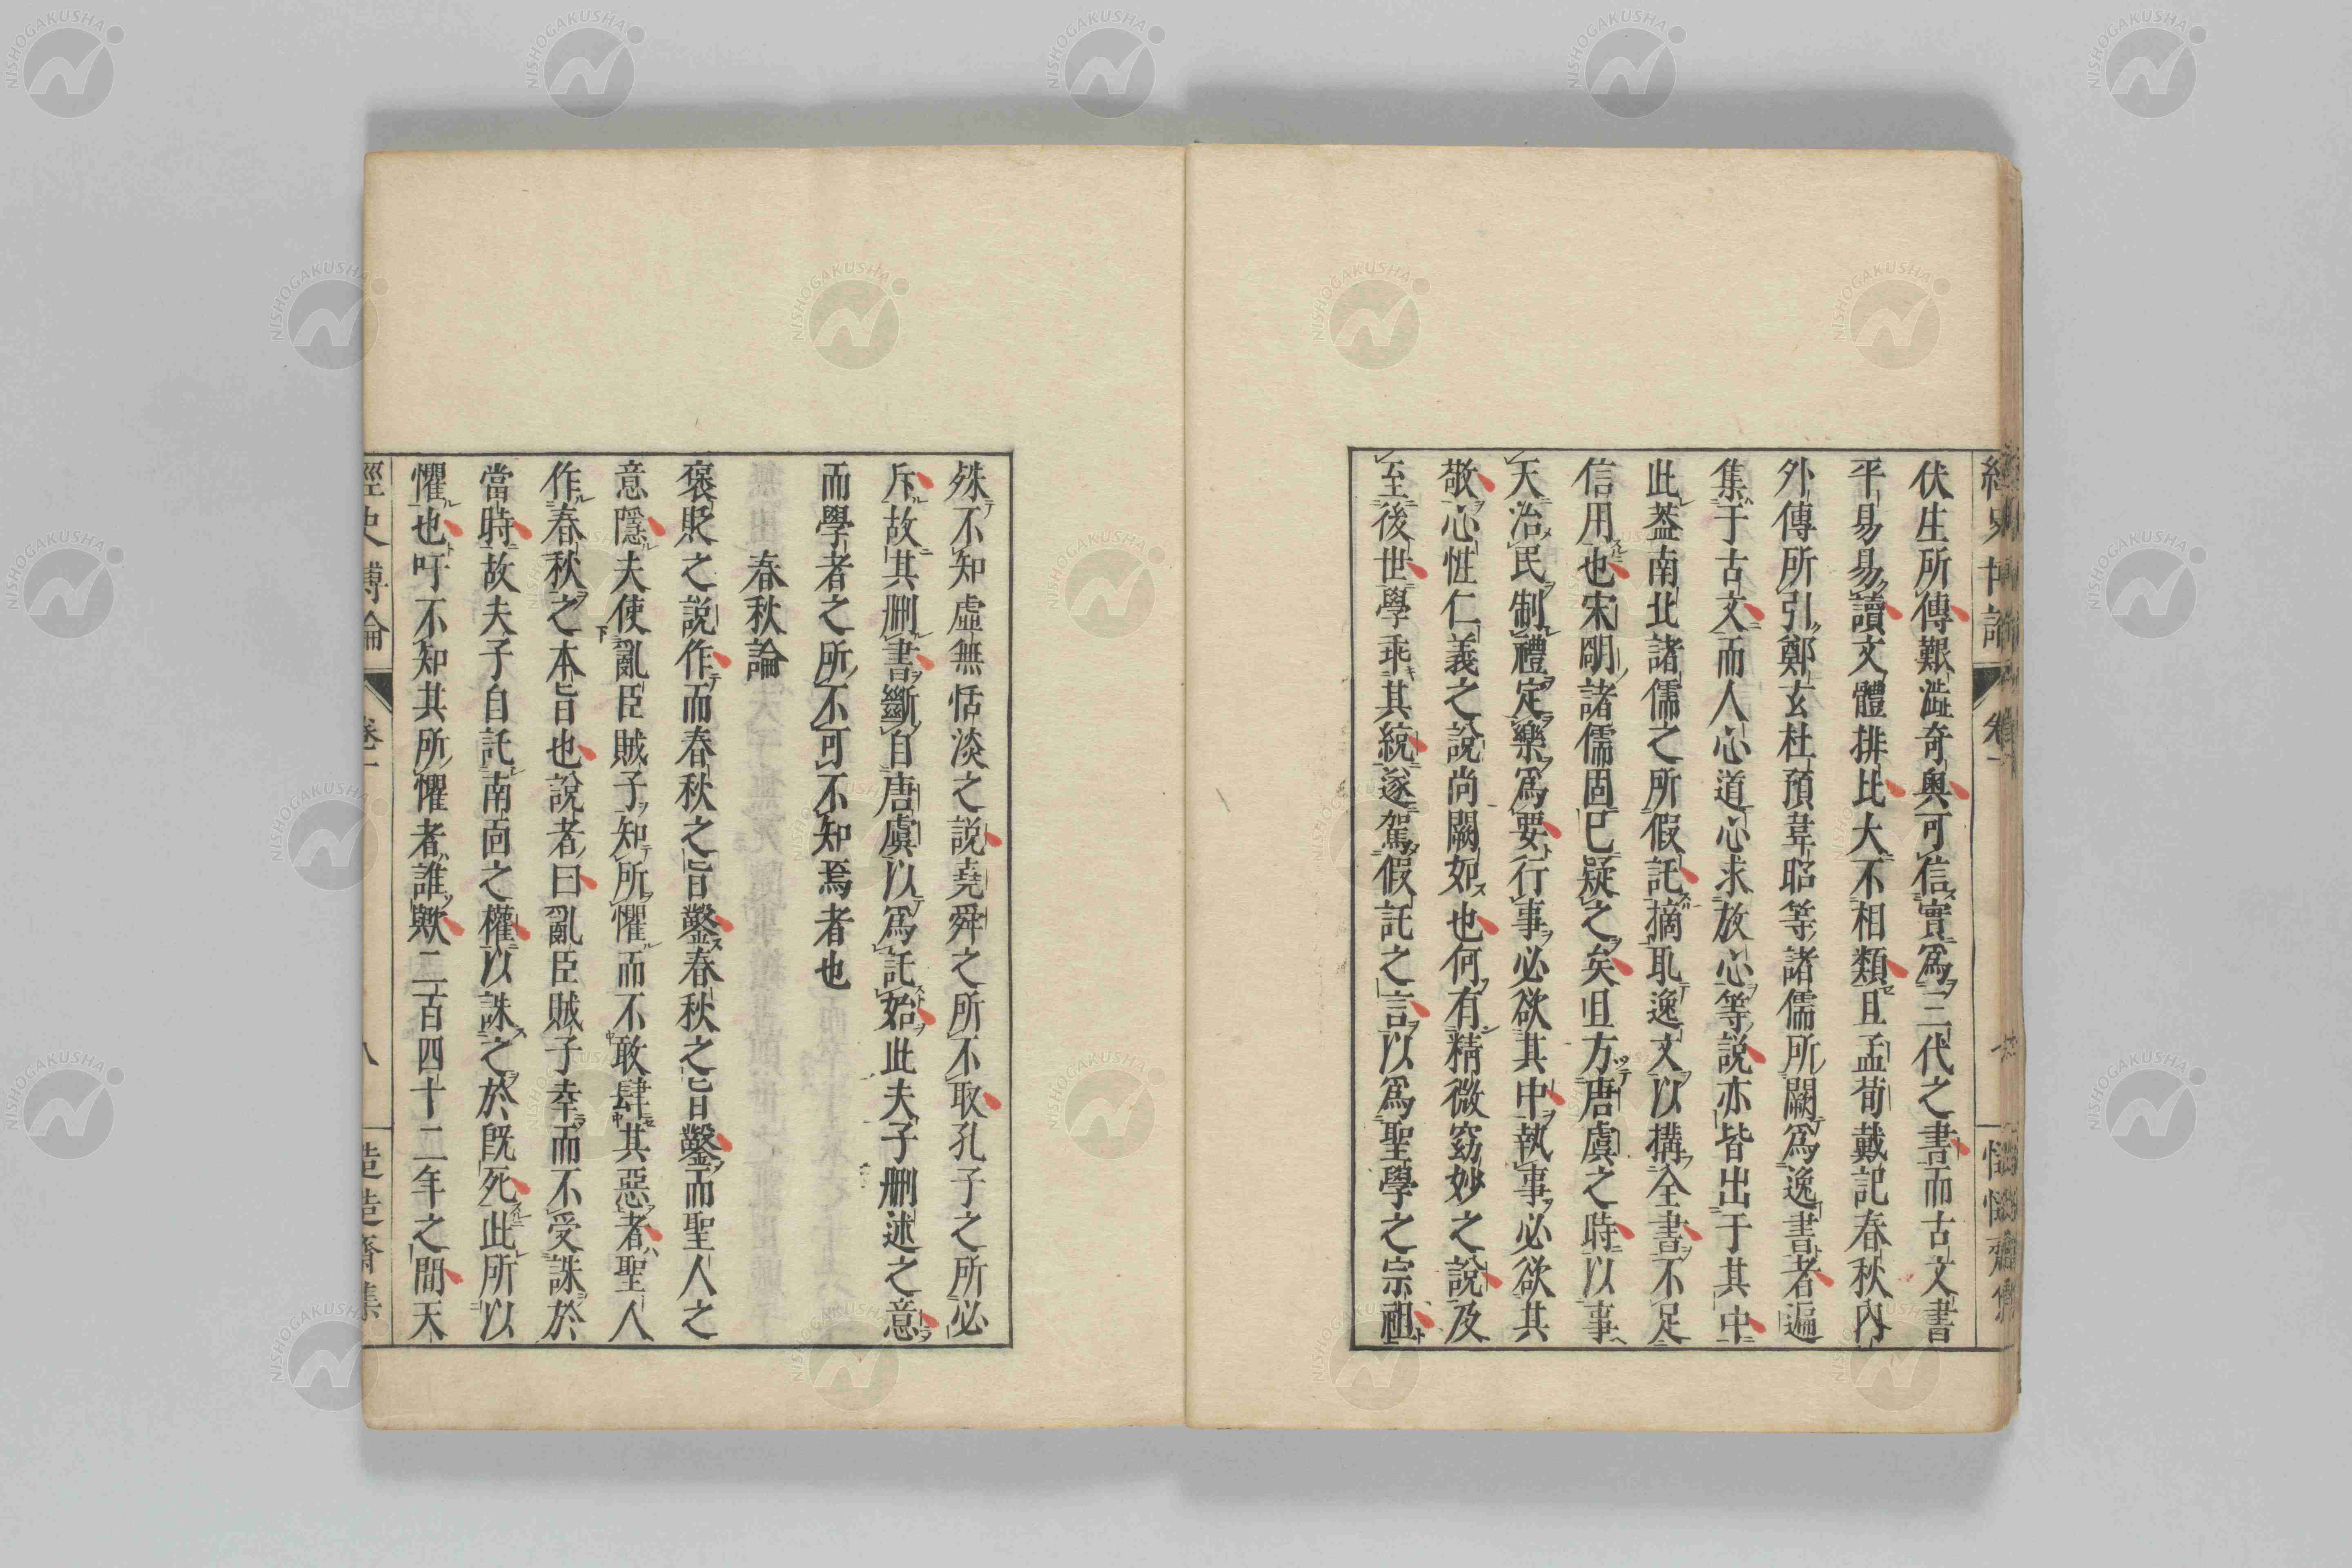 伏生所傳艱澁奇奧可信實爲三代之書而古文書
平易易讀文體排比大不相類且孟荀戴記春秋內
外傳所引鄭玄杜預韋昭等諸儒所闕爲逸書者遍
集于古文而人心道心求放心等說亦皆出于其中
此葢南北諸儒之所假託摘取逸文以構全書不足
信用也宋明諸儒固已疑之矣且方唐虞之時以事
天治民制禮定樂爲要行事必欲其中執事必欲其
敬心性仁義之說尚闕如也何有精微窈妙之說及
至後世學乖其統遂駕假託之言以爲聖學之宗祖
殊不知虛無恬淡之說堯舜之所不取孔子之所必
斥故其刪書斷自唐虞以爲託始此夫子刪述之意
而學者之所不可不知焉者也
春秋論
褒貶之說作而春秋之旨鑿春秋之旨鑿而聖人之
意隱夫使亂臣賊子知所懼而不敢肆其惡者聖人
作春秋之本旨也說者曰亂臣賊子幸而不受誅於
當時故夫子自託南面之權以誅之於旣死此所以
懼也吁不知其所懼者誰歟二百四十二年之間天
經史博論
卷一
八
NISHOGAKUSHA